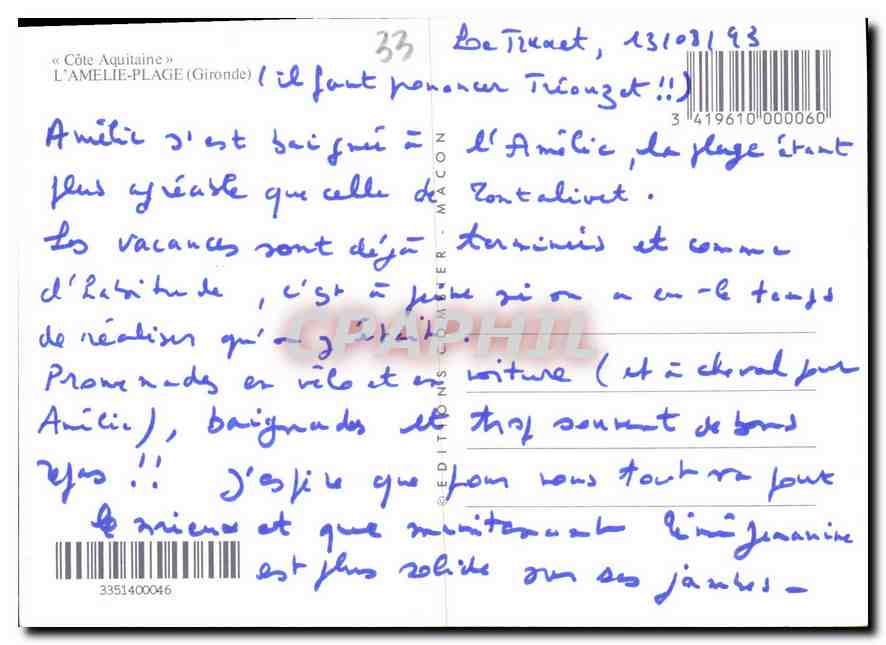 33
Le Truxet, 13/08/93
« Côte Aquitaine »
L'AMELIE-PLAGE (Gironde)
(il faut prononcer Triouzet !!)
3 419610 000060
Amélie s'est baignée à l'Amélie, la plage étant
plus agréable que celle de Montalivet.
Les vacances sont déjà terminées et comme
d'habitude, c'est à peine si on a eu le temps
de réaliser qu'on y était.
Promenades en vélo et en voiture (et à cheval pour
Amélie), baignades et trop souvent de bons
repas !! J'espère que pour vous tout va pour
le mieux et que maintenant Mémé Jeannine
est plus solide sur ses jambes -
© EDITIONS COMBIER - MACON
CPAPHIL
3351400046